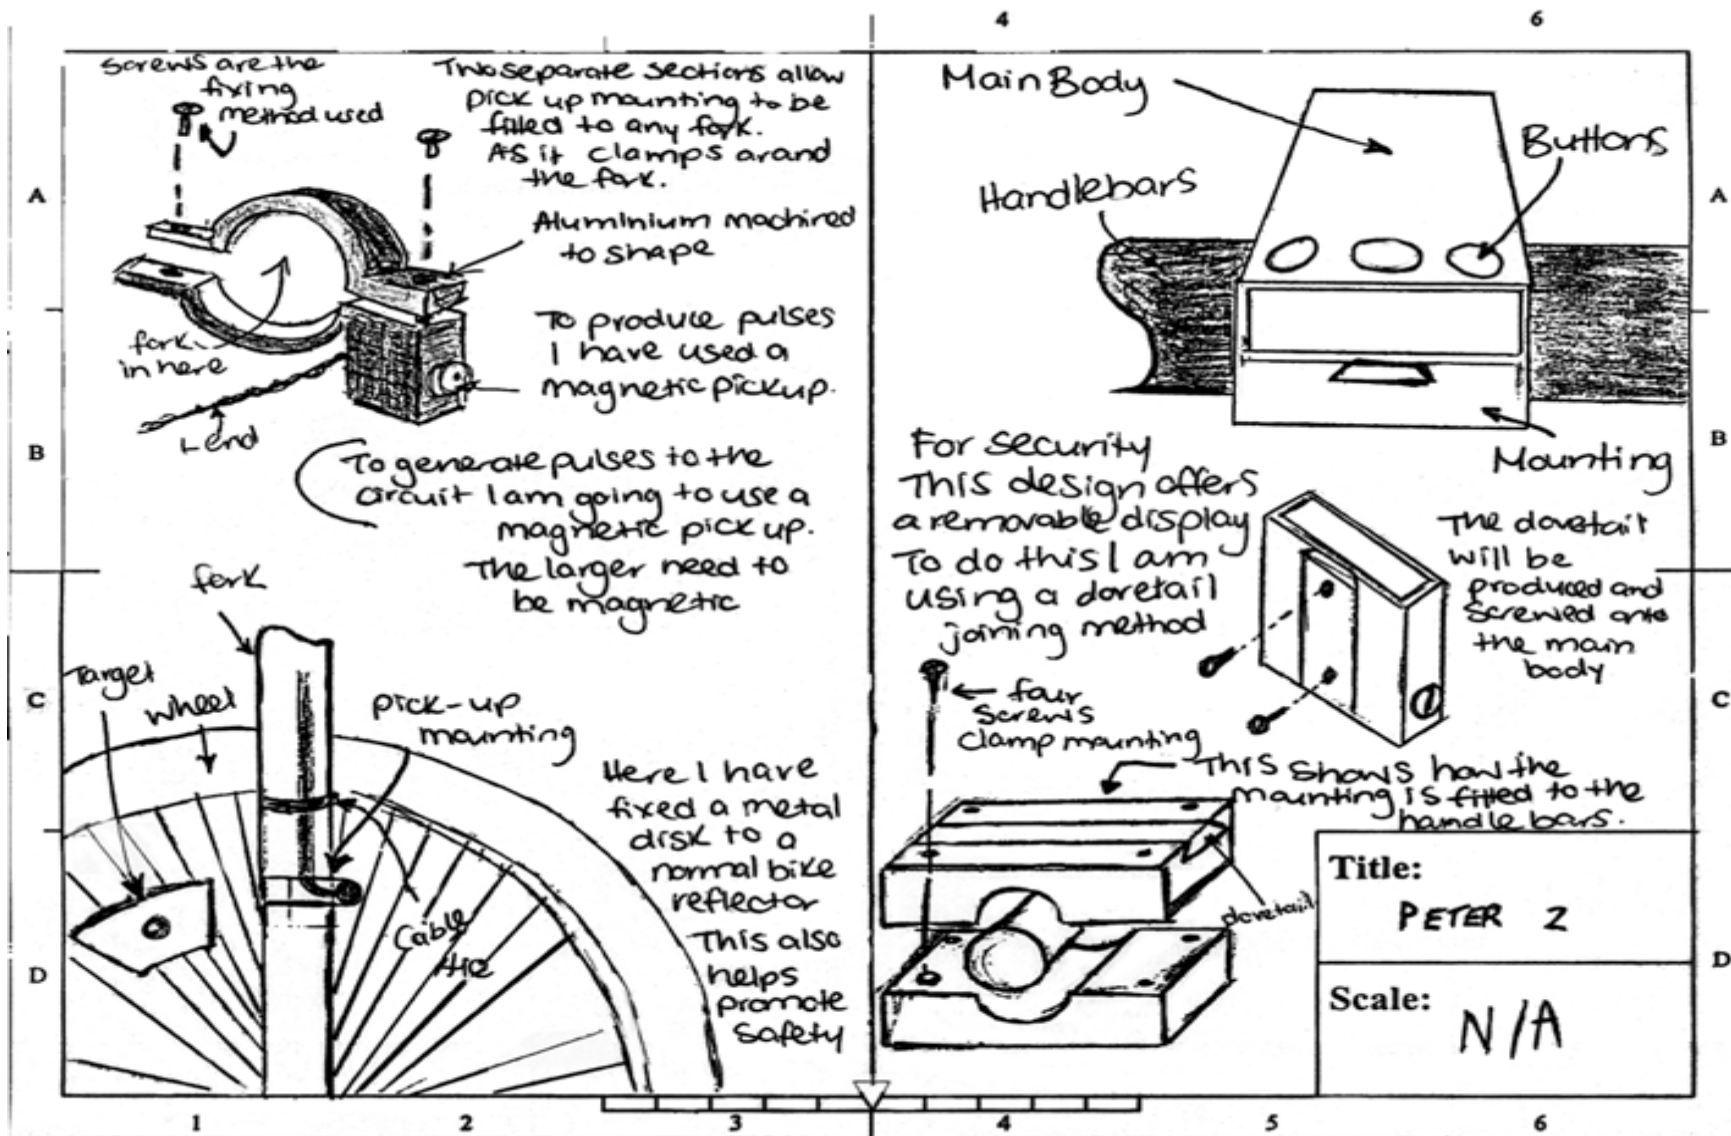 4
6
Screws are the
fixing
method used
Two separate sections allow
pick up mounting to be
fitted to any fork.
As it clamps around
the fork.
Aluminium machined
to shape
To produce pulses
I have used a
magnetic pickup.
fork
in here
To generate pulses to the
circuit I am going to use a
magnetic pick up.
The larger need to
be magnetic
fork
Target
wheel
pick-up
mounting
Here I have
fixed a metal
disk to a
normal bike
reflector
This also
helps
promote
safety
Cable
tie
Main Body
Buttons
Handlebars
Mounting
For security
This design offers
a removable display
To do this I am
using a dovetail
joining method
The dovetail
will be
produced and
screwed onto
the main
body
four
screws
clamp mounting
This shows how the
mounting is fitted to the
handle bars.
dovetail
Title:
PETER 2
Scale:
N/A
A
B
C
D
A
B
C
D
1
2
3
4
5
6